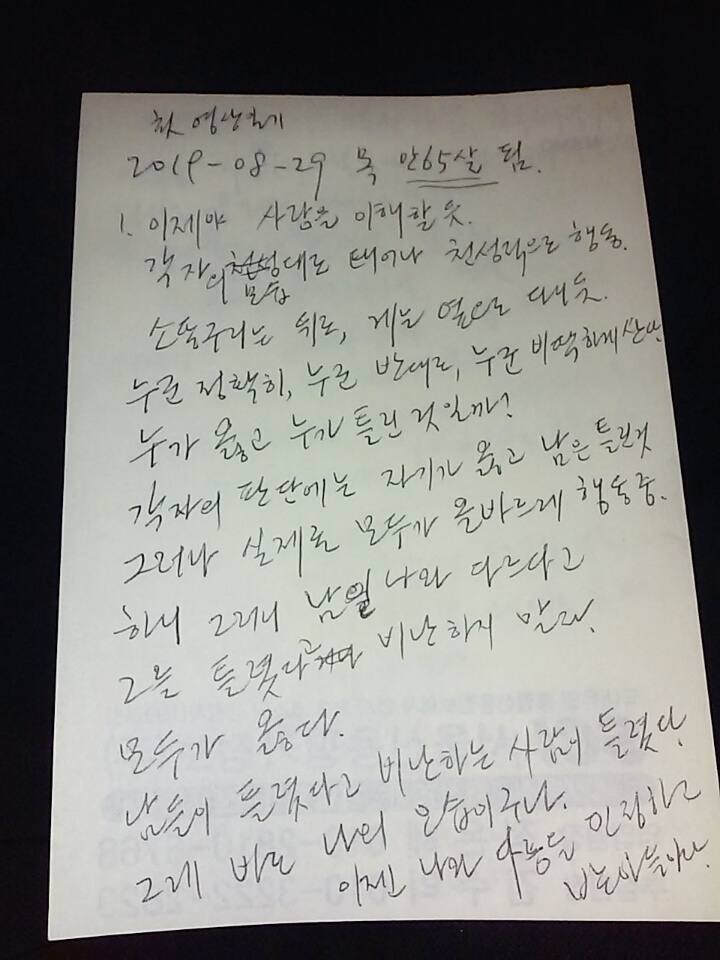 첫 영상일기
2019-08-29 목 만65살 됨.
1. 이제야 사람을 이해할 듯.
각자의 모습대로 태어나 천성적으로 행동.
소똥구리는 뒤로, 게는 옆으로 다니듯.
누군 정확히, 누군 반대로, 누군 비딱하게 산다.
누가 옳고 누가 틀린 것일까?
각자의 판단에는 자기가 옳고 남은 틀린것
그러나 실제로 모두가 올바르게 행동중.
하니 그러니 남이 나와 다르다고
그를 틀렸다고 비난하지 말라.
모두가 옳다.
남들이 틀렸다고 비난하는 사람이 틀렸다.
그게 바로 나의 모습이구나.
이젠 나와 을 인정하고